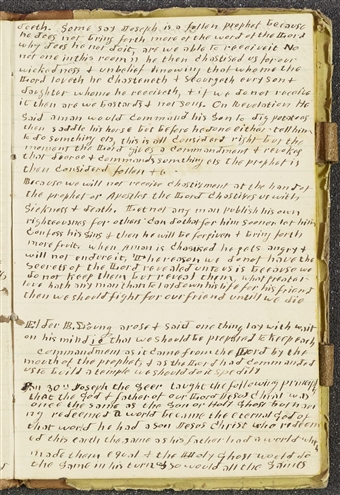 forth. Some say Joseph is a fallen prophet because
he does not bring forth more of the word of the Lord
why does he not do it, are we able to receive it No
not one in this room is he then chastised us for our
wickedness & unbelief knowing that whome the
Lord loveth he chasteneth & scourgeth evry son &
daughter whome he receiveth, & if we do not receive
it then are we bastards & not sons. On Revelation He
said a man would command his son to dig potatoes
then saddle his horse but before he done either tell him
to do something els, this is all considered right but the
moment the Lord gives a commandment & revokes
that decree & commands something els the prophet is
then considered fallen &c -
Because we will not receive chastisment at the hand of
the prophet or Apostles the Lord chastises us with
sickness & death. Let not any man publish his own
righteousness for others can do that for him sooner let him
confess his sins & then he will be forgiven & bring forth
more fruit. when a man is chastised he gets angry &
will not endure it, The reason we do not have the
secrets of the Lord revealed unto us is because we
do not keep them but reveal them, what greater
love hath any man than to lay down his life for his friend
then we should fight for our friend untill we die
Elder B. Young arose & said one thing lay with wait
on his mind ie that we should be prepared to keep each
commandment as it came from the Lord by the
mouth of the prophet & as the Lord had commanded
us to build a temple we should do it spedily
Jan 30th Joseph the Seer taught the following principle
that the God & father of our Lord Jesus Christ was
once the same as the Son or Holy Ghost but having
redeemed a world became the eternal God of
that world he had a son Jesus Christ who redeemed
this earth the same as his father had a world which
made them equal & the Holy Ghost would do
the same in his turn & so would all the Saints